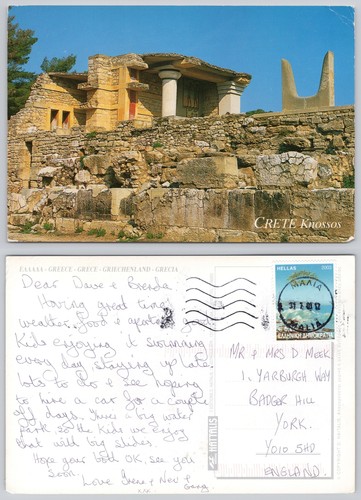 CRETE Knossos
ΕΛΛΑΔΑ - GREECE - GRECE - GRIECHENLAND - GRECIA
Dear Dave & Brenda
Having great time,
weather good &
Kids enjoying it swimming
every day, staying up late
lots to do & see hoping
to hire a car for a couple
of days. There's big water
park so the kids will enjoy
that wild big slides.
Hope your both OK, see you
soon.
Love Irene & Nev &
HELLAS
2000
ΜΑΛΙΑ
MALIA
ΕΛΛΗΝΙΚΗ ΔΗΜΟΚΡΑΤΙΑ
MR & MRS D MEEK
1, YARBURGH WAY
BADGER HILL
YORK.
YO10 5HD
ENGLAND.